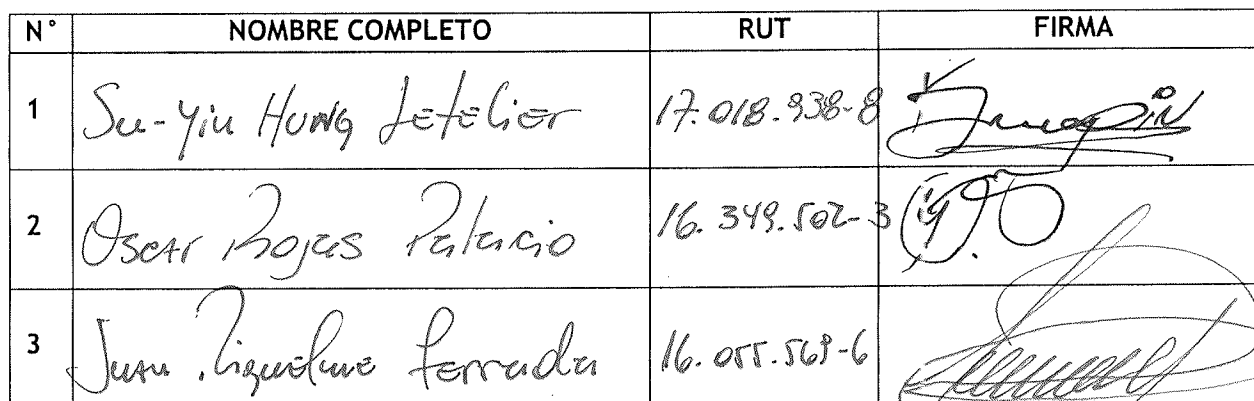 N° NOMBRE COMPLETO RUT FIRMA
1 Su-Yin HUNG Letelier 17.018.938-8
2 Oscar Rojas Palacio 16.349.502-3
3 Juan Riquelme Ferrada 16.055.569-6